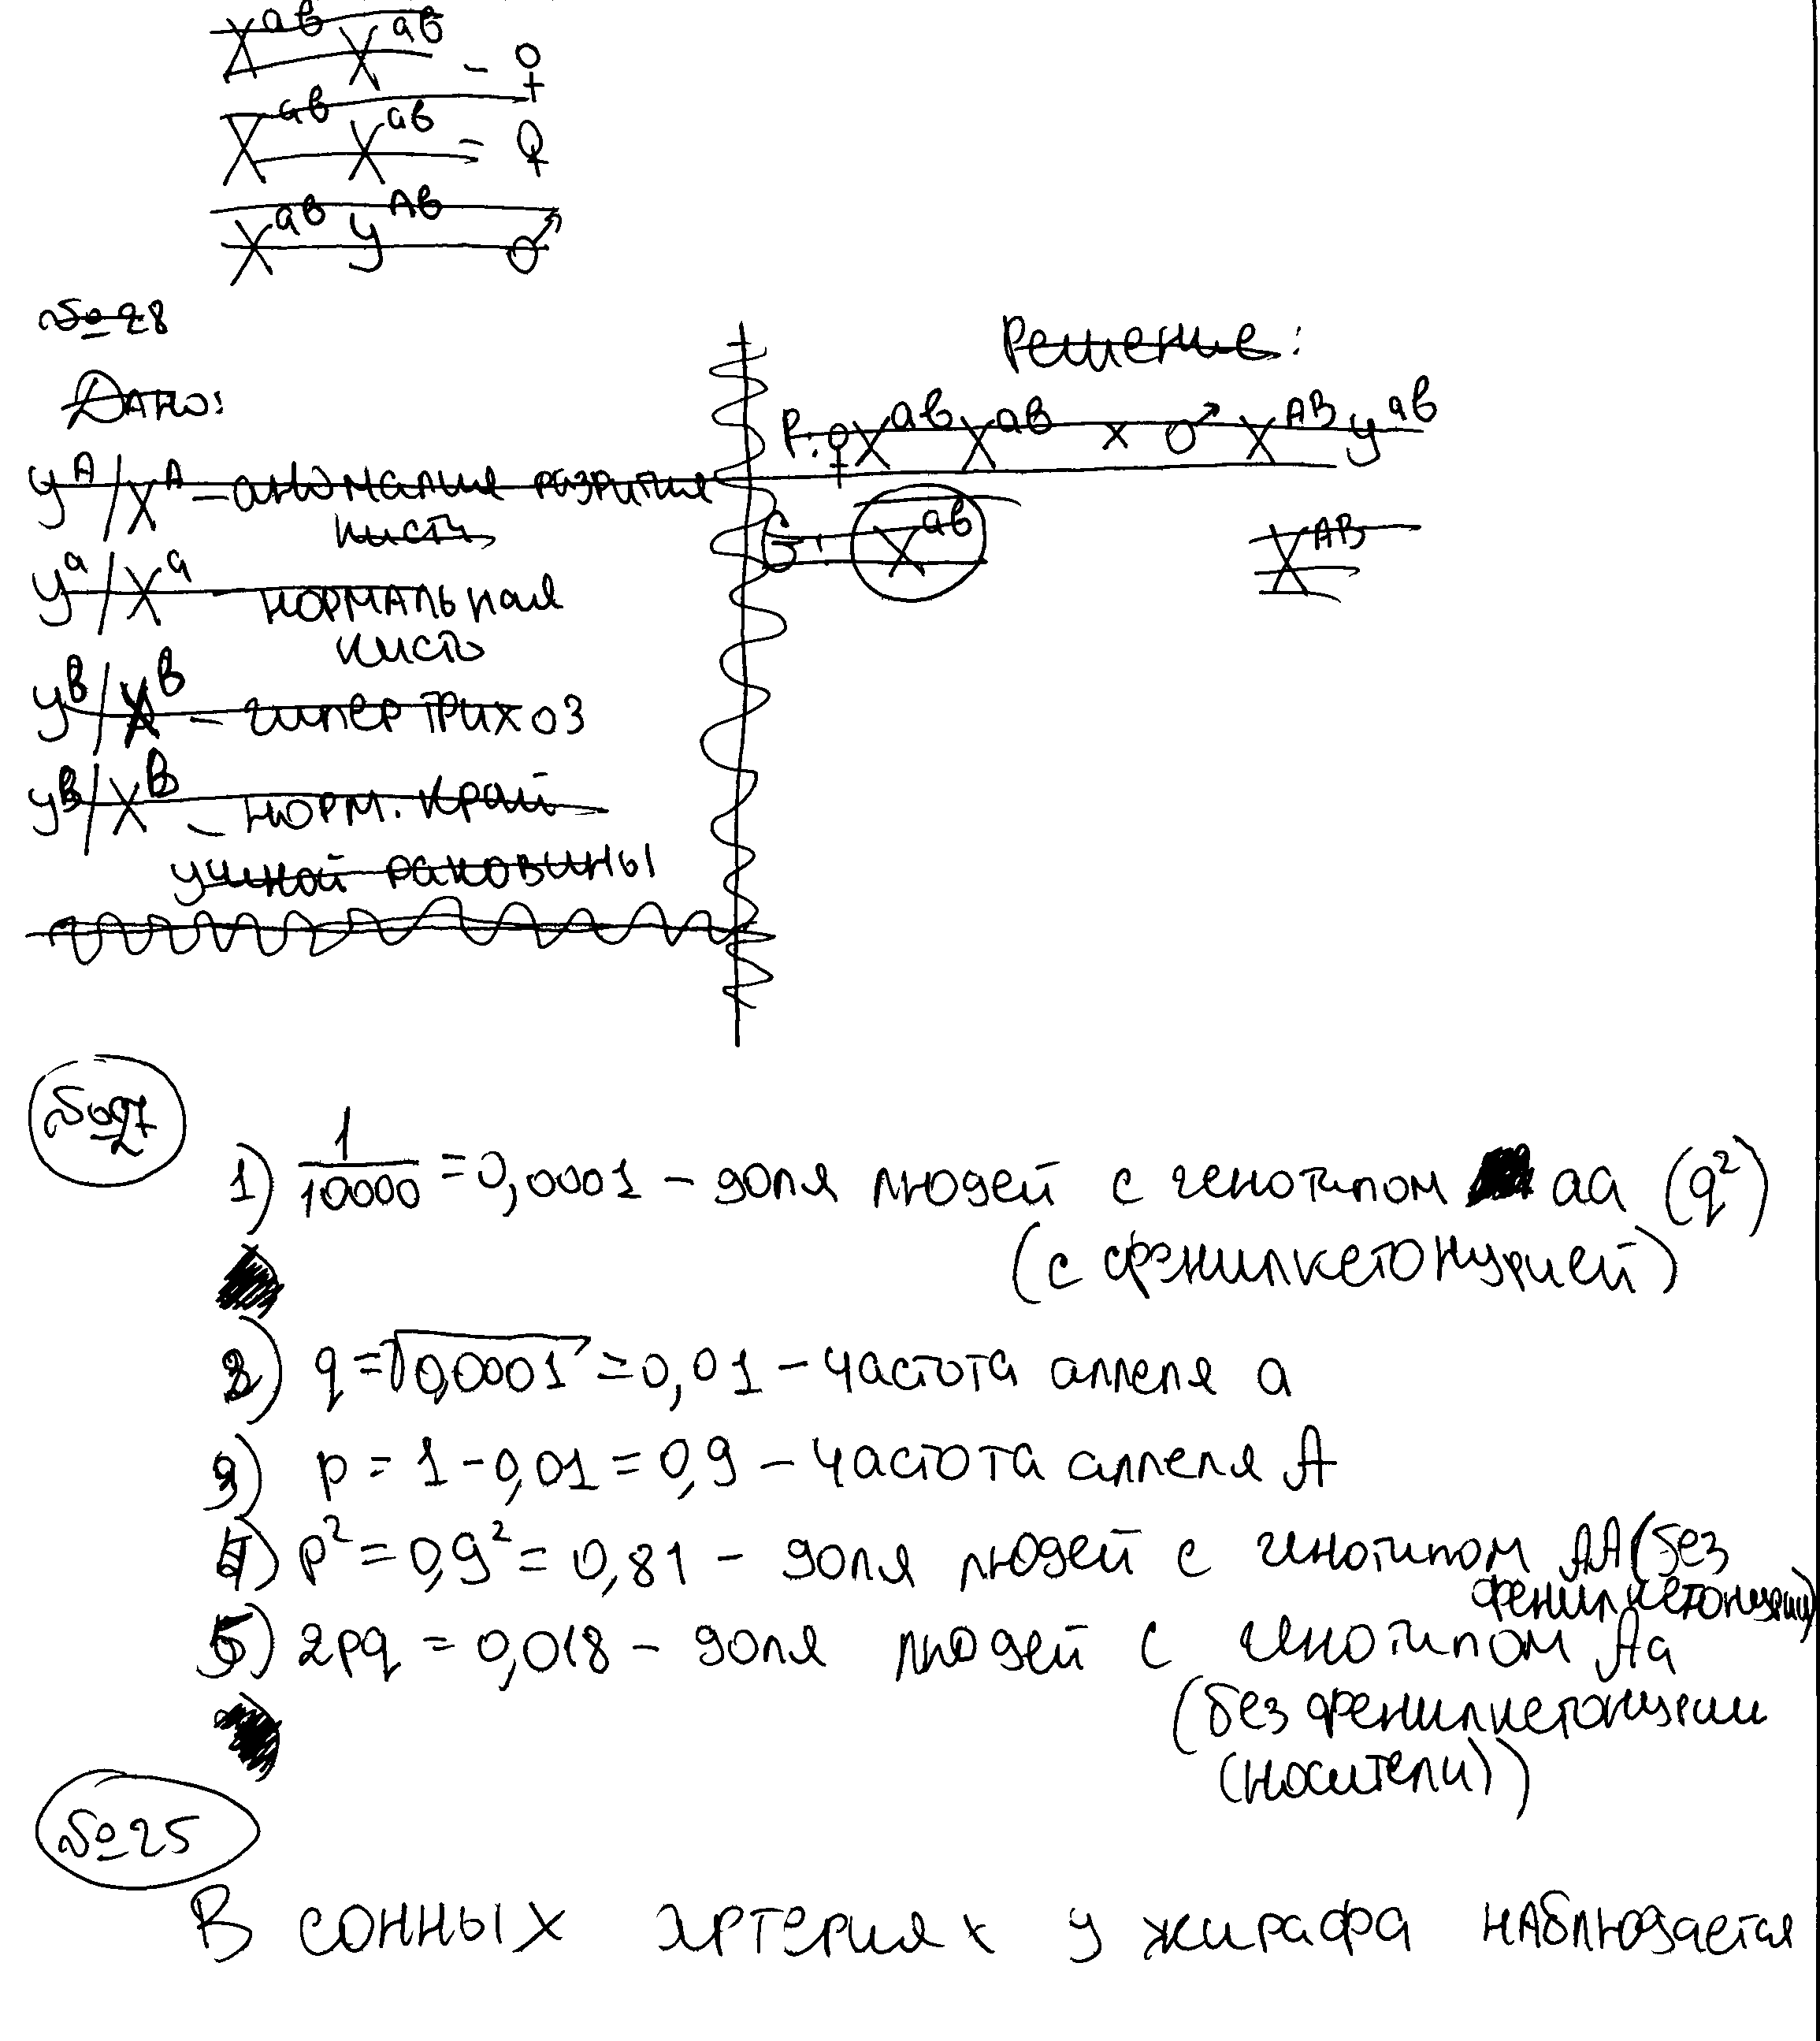 Xᵃᵇ Xᵃᵇ - ♀
Xᵃᵇ Xᵃᵇ = ♀
Xᵃᵇ Yᴬᵇ ♂
№28
Дано:
Решение:
P: ♀ Xᵃᵇ Xᵃᵇ × ♂ Xᴬᴮ Yᵃᵇ
G: Xᵃᵇ Xᴬᴮ
Yᴬ/Xᴬ – аномалия развития
кисти
Yᵃ/Xᵃ – нормальная
кисть
Yᴮ/Xᴮ – гипертрихоз
Yᴮ/Xᴮ – норм. край
ушной раковины
№27
1) 1/10000 = 0,0001 – доля людей с генотипом аа (q²)
(с фенилкетонурией)
2) q = √0,0001 = 0,01 – частота аллеля а
3) p = 1 - 0,01 = 0,9 – частота аллеля А
4) p² = 0,9² = 0,81 – доля людей с генотипом АА (без
фенилкетонурии)
5) 2pq = 0,018 – доля людей с генотипом Аа
(без фенилкетонурии
(носители))
№25
В сонных артериях у жирафа наблюдается